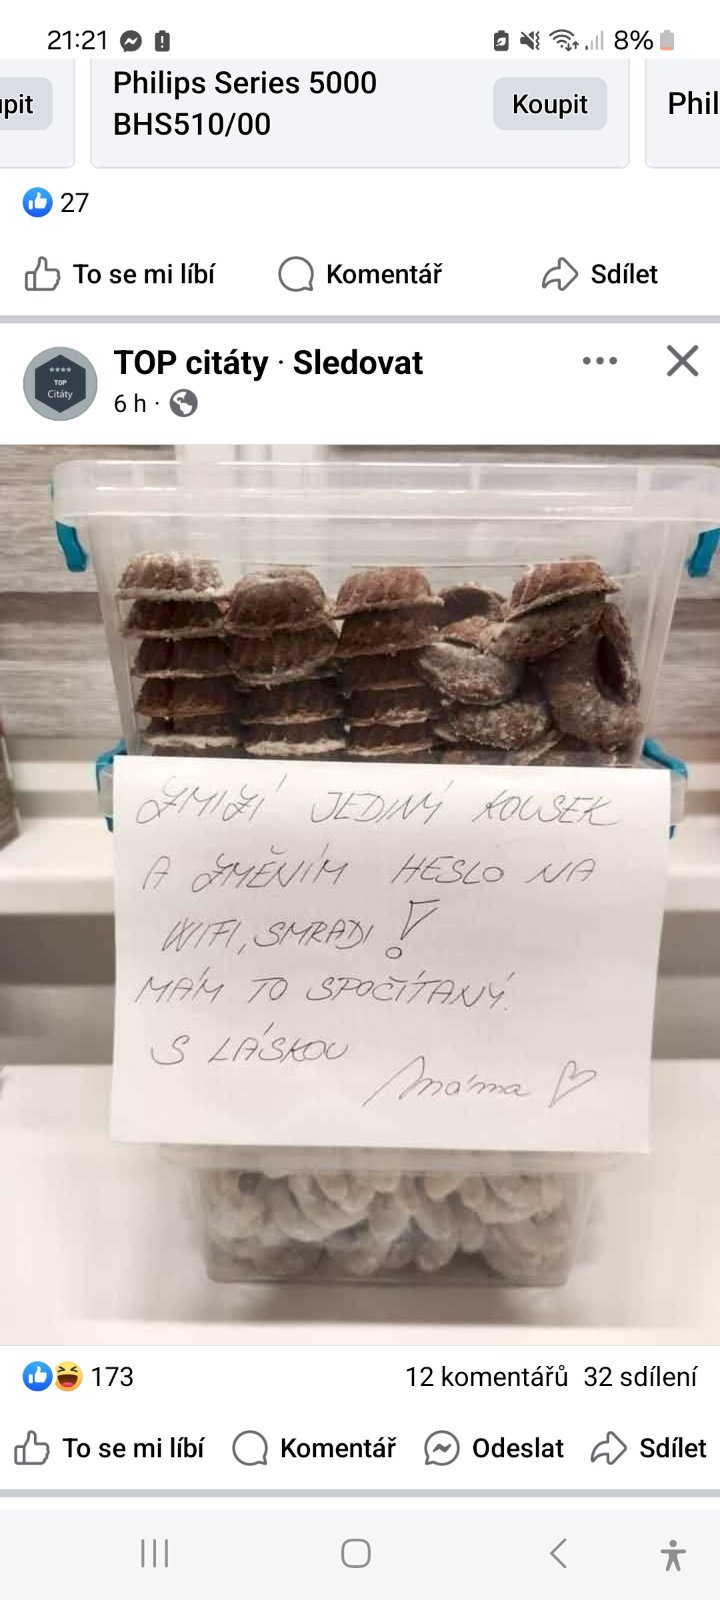 21:21
8%
upit
Philips Series 5000
BHS510/00
Koupit
Phil
27
To se mi líbí
Komentář
Sdílet
TOP citáty · Sledovat
6 h ·
TOP
Citáty
ZMIZÍ JEDINÝ KOUSEK
A ZMĚNÍM HESLO NA
WIFI, SMRADI!
MÁM TO SPOČÍTANÝ.
S LÁSKOU
Máma
173
12 komentářů 32 sdílení
To se mi líbí
Komentář
Odeslat
Sdílet